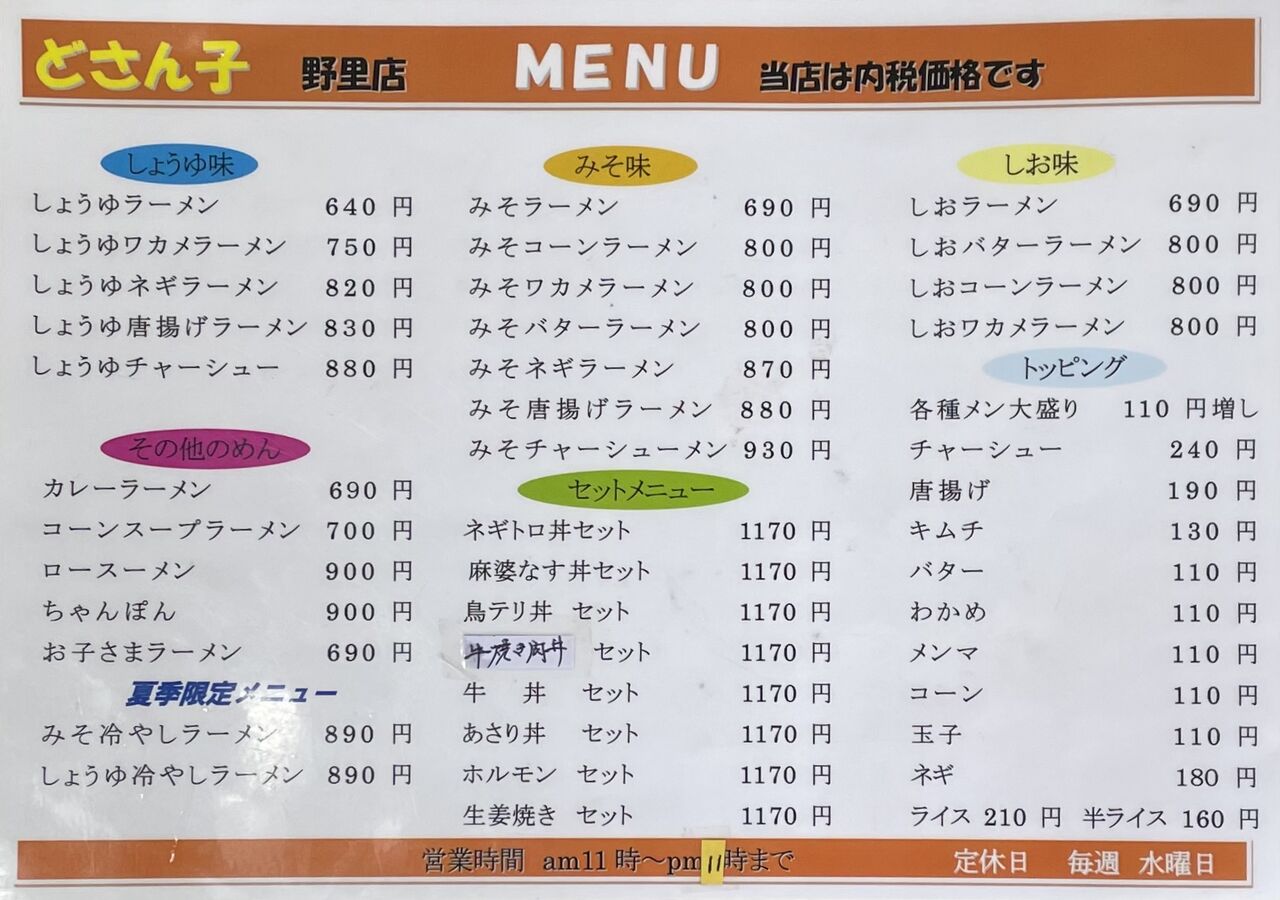 どさん子 野里店 MENU 当店は内税価格です
しょうゆ味
しょうゆラーメン 640 円
しょうゆワカメラーメン 750 円
しょうゆネギラーメン 820 円
しょうゆ唐揚げラーメン 830 円
しょうゆチャーシュー 880 円
その他のめん
カレーラーメン 690 円
コーンスープラーメン 700 円
ロースーメン 900 円
ちゃんぽん 900 円
お子さまラーメン 690 円
夏季限定メニュー
みそ冷やしラーメン 890 円
しょうゆ冷やしラーメン 890 円
みそ味
みそラーメン 690 円
みそコーンラーメン 800 円
みそワカメラーメン 800 円
みそバターラーメン 800 円
みそネギラーメン 870 円
みそ唐揚げラーメン 880 円
みそチャーシューメン 930 円
セットメニュー
ネギトロ丼セット 1170 円
麻婆なす丼セット 1170 円
鳥テリ丼 セット 1170 円
牛焼き肉丼 セット 1170 円
牛 丼 セット 1170 円
あさり丼 セット 1170 円
ホルモン セット 1170 円
生姜焼き セット 1170 円
しお味
しおラーメン 690 円
しおバターラーメン 800 円
しおコーンラーメン 800 円
しおワカメラーメン 800 円
トッピング
各種メン大盛り 110 円増し
チャーシュー 240 円
唐揚げ 190 円
キムチ 130 円
バター 110 円
わかめ 110 円
メンマ 110 円
コーン 110 円
玉子 110 円
ネギ 180 円
ライス 210 円 半ライス 160 円
営業時間 am11時〜pm11時まで 定休日 毎週 水曜日